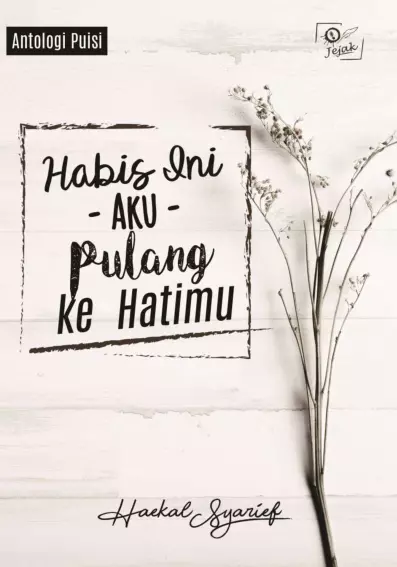 Antologi Puisi
Jejak
Habis Ini
- AKU -
Pulang
Ke Hatimu
Haekal Syarief